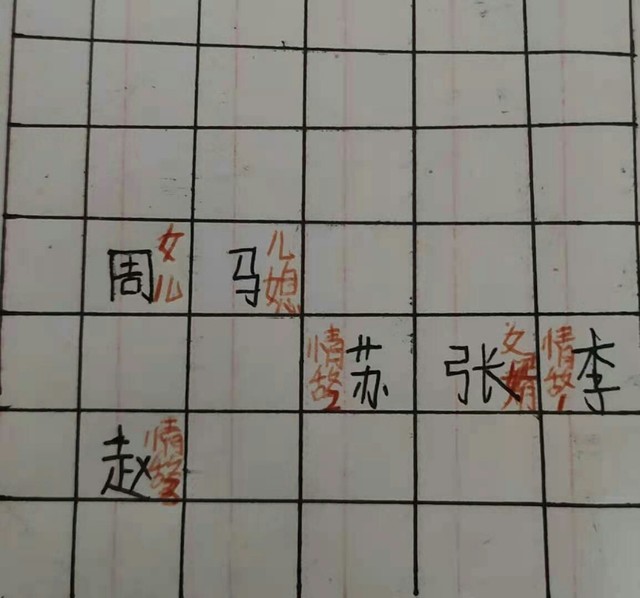 周 女儿 马 儿媳
情敌2 苏 张 女婿 情敌1 李
赵 情敌3